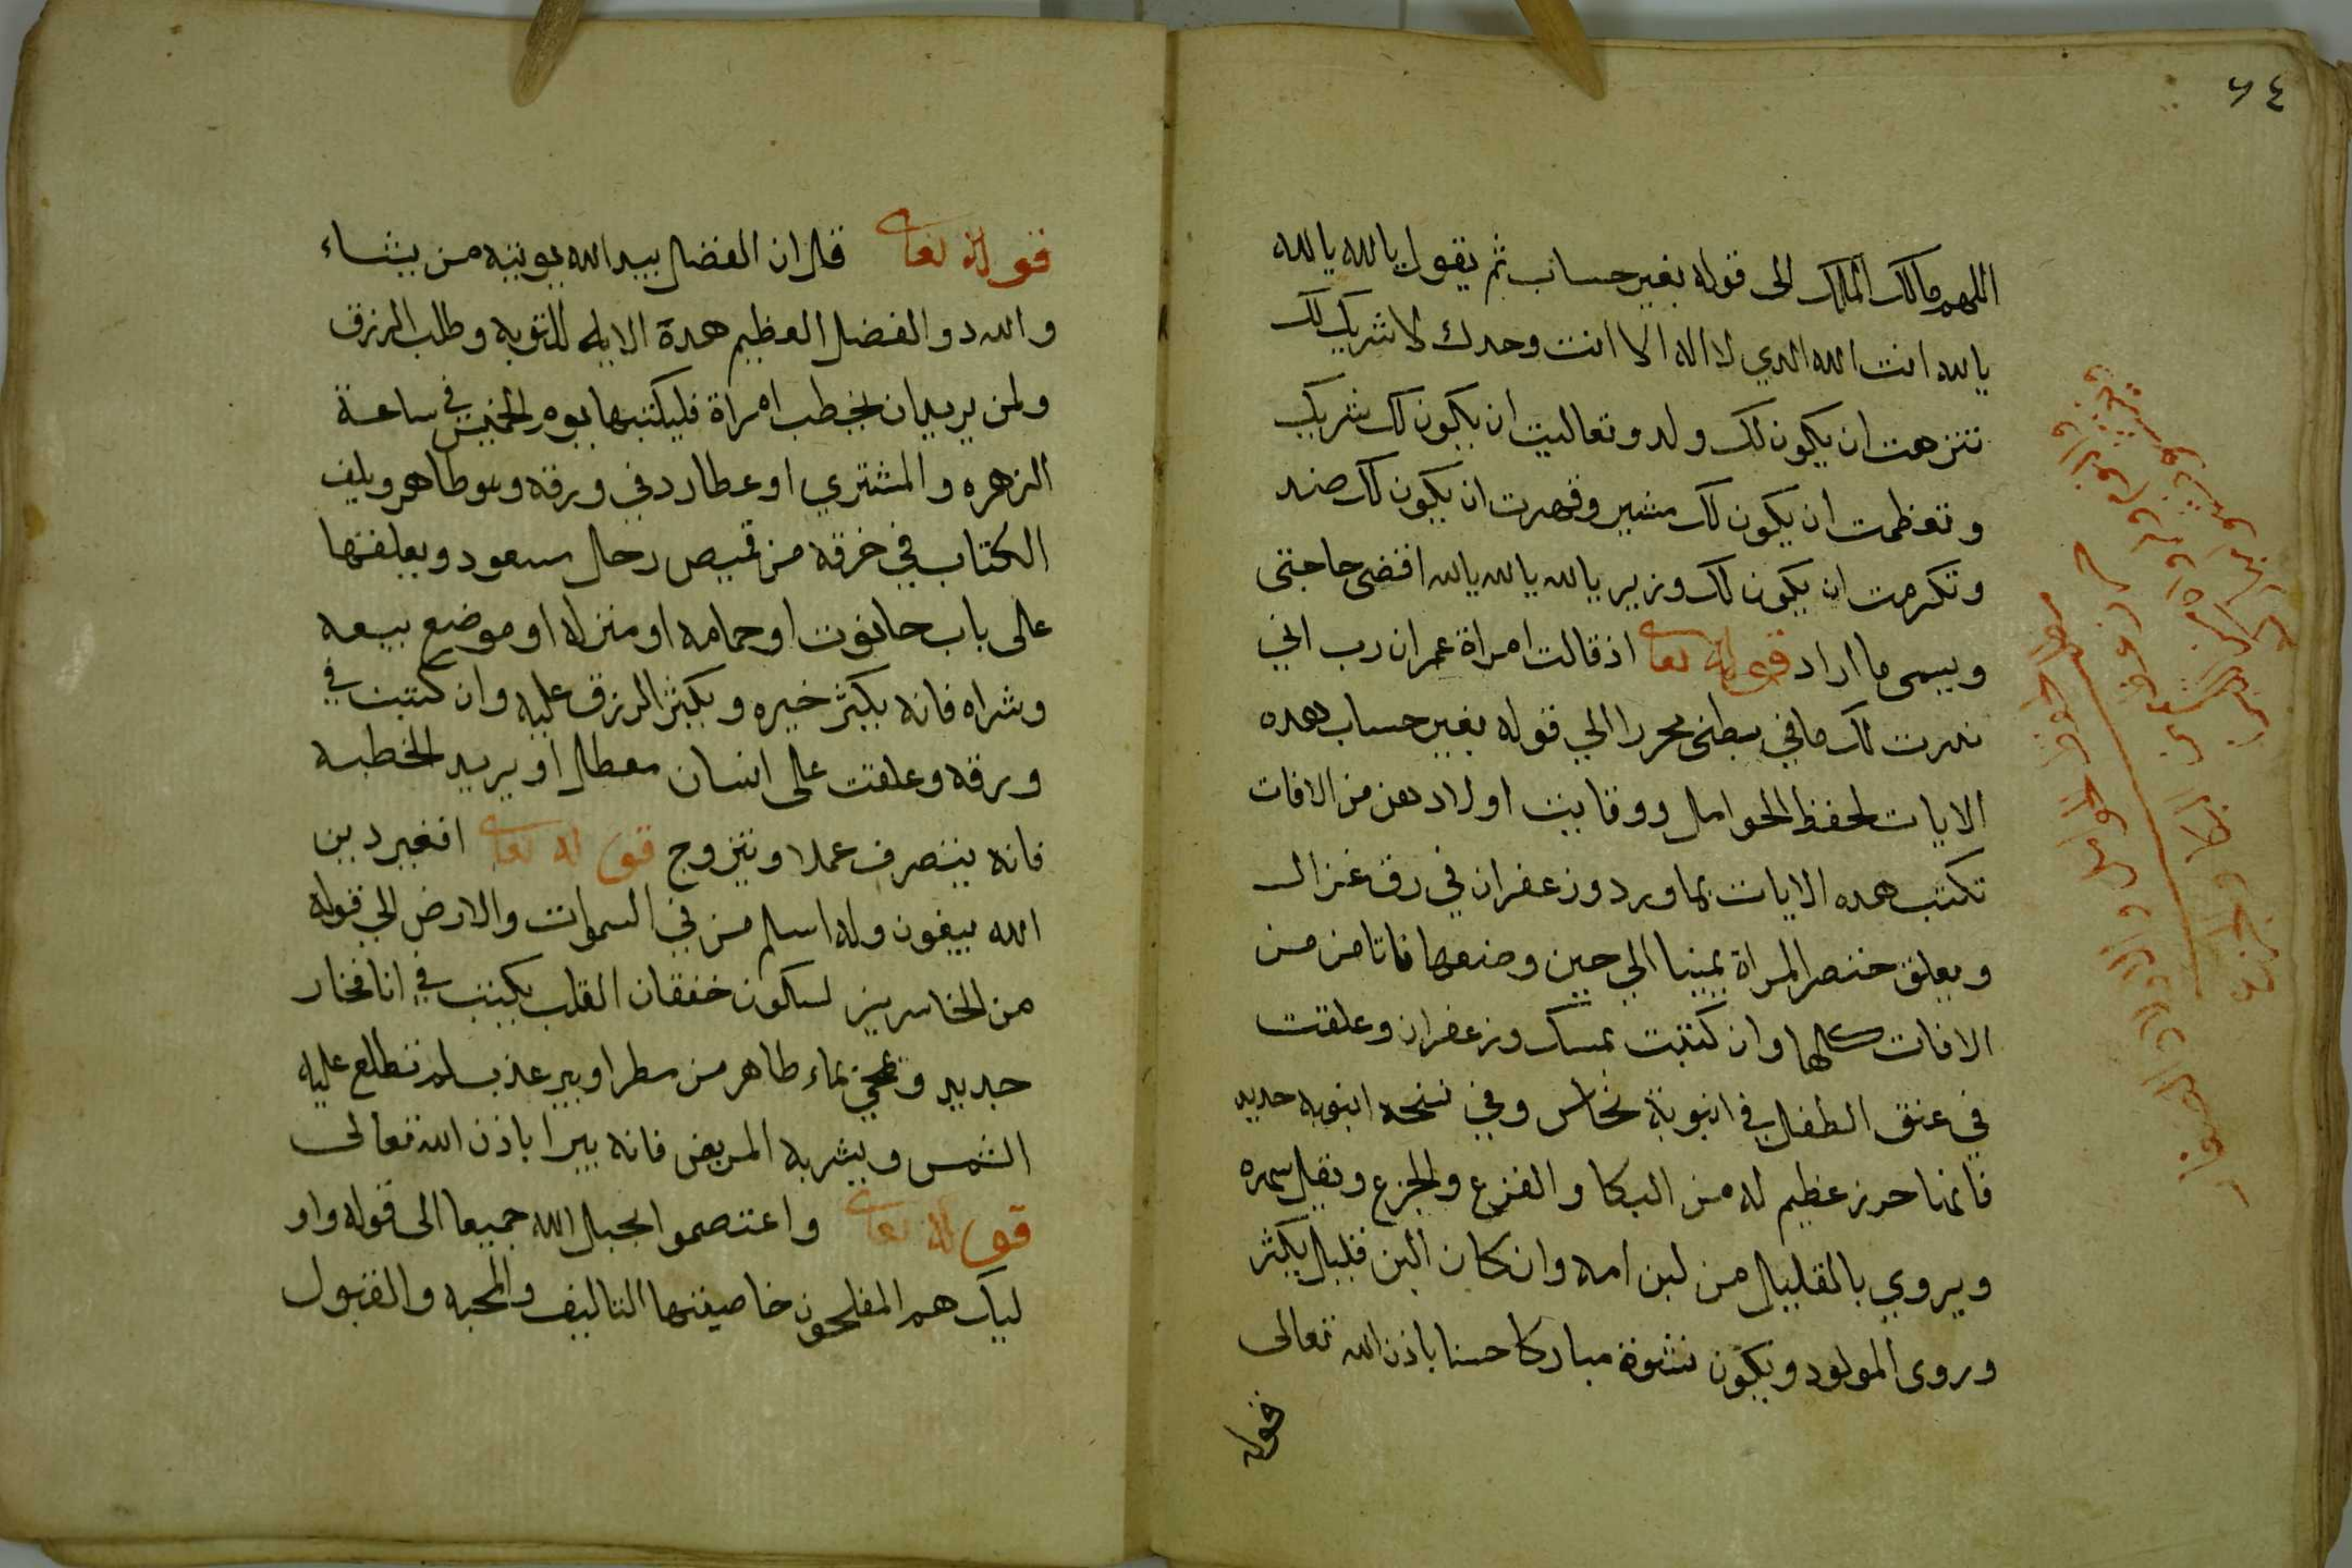 ٦٤
اللهم مالك الملك الى قوله بغير حساب ثم يقول يا لله يا لله
يا لله انت الله الدي لا اله الا انت وحدك لا شريك لك
تنزهت ان يكون لك ولد وتعاليت ان يكون لك شريك
وتعظمت ان يكون لك مشير وقهرت ان يكون لك ضد
وتكرمت ان يكون لك وزير يا لله يا لله يا لله اقضى حاجتى
ويسمى ما اراد قوله تعالى اذ قالت امراة عمران رب اني
ندرت لك ما في بطنى محررا الي قوله بغير حساب هده
الايات لحفظ الحوامل ووقايت اولادهن من الافات
تكتب هده الايات بماورد وزعفران في رق غزال
ويعلق خنصر المراة يمينا الي حين وضعها فاتامن من
الافات كلها وان كتبت بمسك وزعفران وعلقت
في عنق الطفل في انبوبة نحاس وفي نسخه انبوبه حديد
فانها حرز عظيم له من البكا والفزع والجزع ويقل سهره
ويروي بالقليل من لبن امه وان كان البن قليل يكثر
وروى المولود ويكون نشوة مباركا حسنا باذن الله تعالى
قوله
قوله تعالى قل ان الفضل بيد الله يوتيه من يشاء
والله دو الفضل العظيم هدة الايه للتوبه وطلب الرزق
ولمن يريد ان يخطب امراة فليكتبها يوم الخميس في ساعة
الزهره والمشتري او عطارد في ورقه وهو طاهر ويلف
الكتاب في خرقه من قميص رجل سعود ويعلقها
على باب حانوت او حمامه او منزله او موضع بيعه
وشراه فانه يكثر خيره ويكثر الرزق عليه وان كتبت في
ورقه وعلقت على انسان معطل او يريد الخطبه
فانه يتصرف عملا ويتزوج قوله تعالى افغير دين
الله يبغون وله اسلم من في السموات والارض الي قوله
من الخاسرين لسكون خفقان القلب يكتب في انا فخار
جديد وتمحي بماء طاهر من مطر او بير عذب لم تطلع عليه
الشمس ويشربه المريض فانه يبرا باذن الله تعالى
قوله تعالى واعتصموا بحبل الله جميعا الى قوله واو
ليك هم المفلحون خاصيتها التاليف والمحبه والقبول